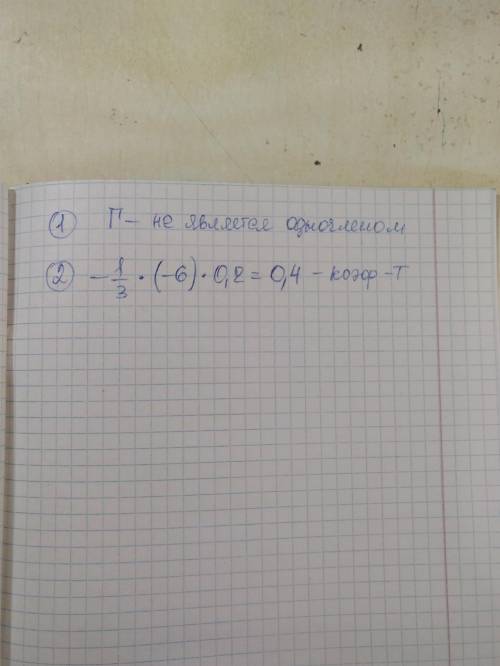 ① Г – не является одночленом
② -1/3 · (-6) · 0,2 = 0,4 – коэф-т